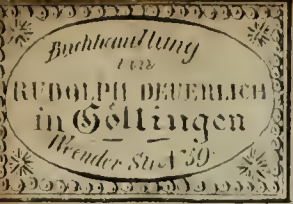 Buchhandlung
von
RUDOLPH DEUERLICH
in Göttingen
Weender Str. N° 59